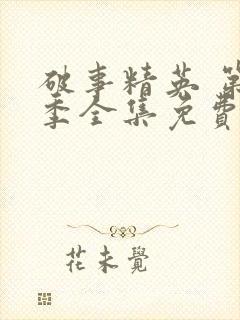 破事精英 第
季全集免費
花未覺